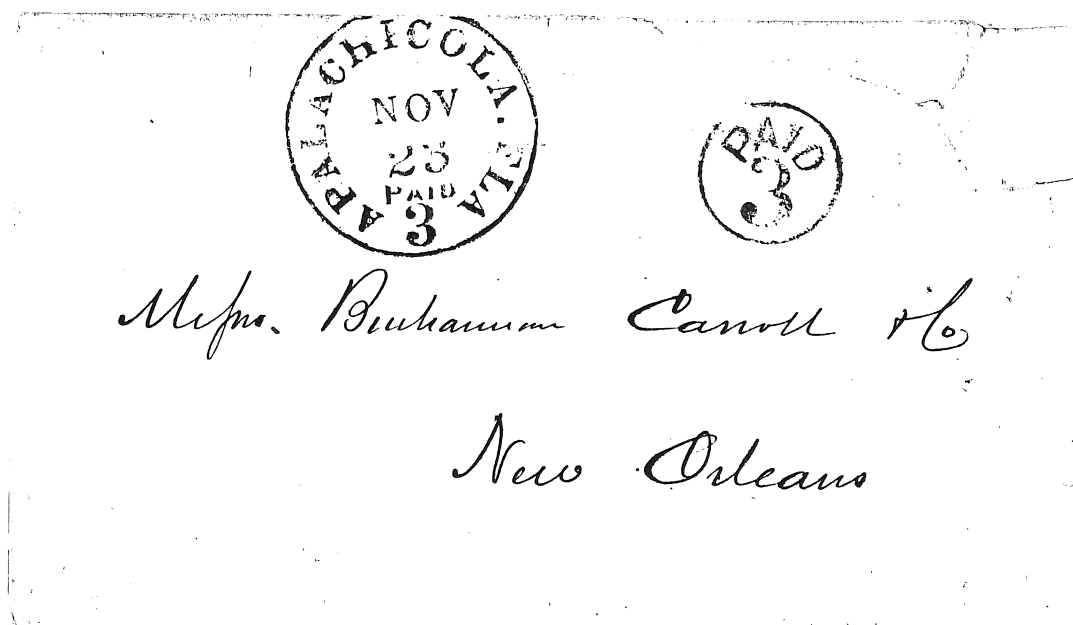 APALACHICOLA. FLA
NOV
23
PAID
3
PAID
3
Messrs. Buchannan Carroll & Co
New Orleans